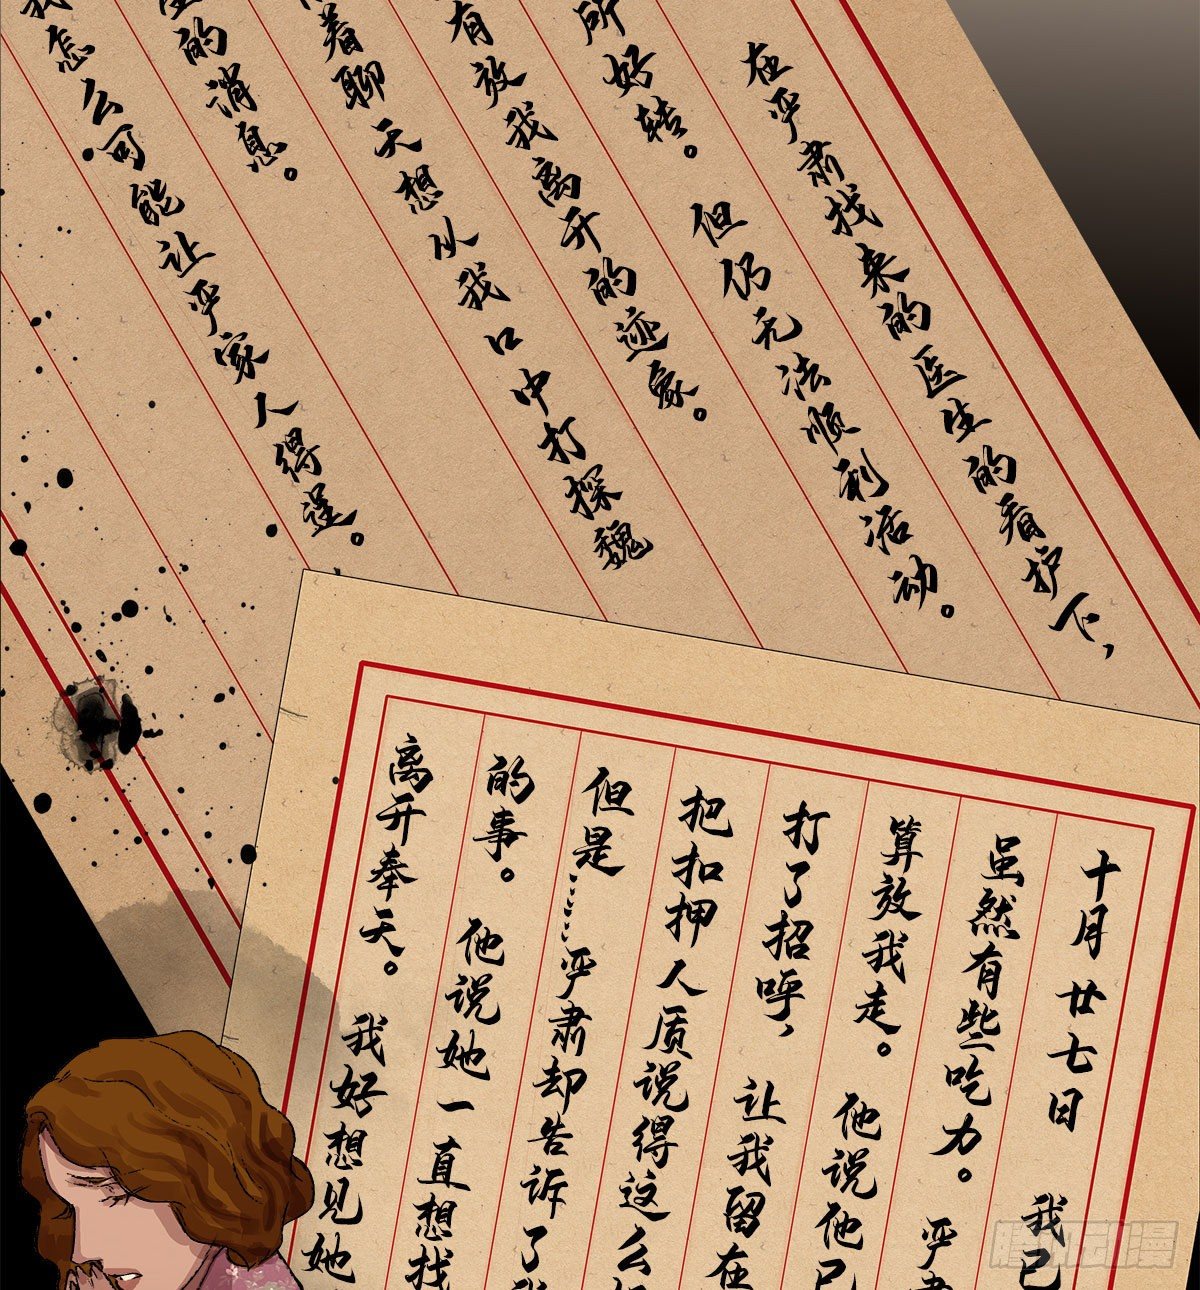 在严肃找来的医生的看护下，
所好转。 但仍无法顺利活动。
有放我离开的迹象。
着聊天想从我口中打探魏
的消息。
我怎么可能让严家人得逞。
十月廿七日 我已
虽然有些吃力。 严肃
算放我走。 他说他已
打了招呼， 让我留在
把扣押人质说得这么
但是……严肃却告诉了我
的事。 他说她一直想找
离开奉天。 我好想见她
腾讯动漫